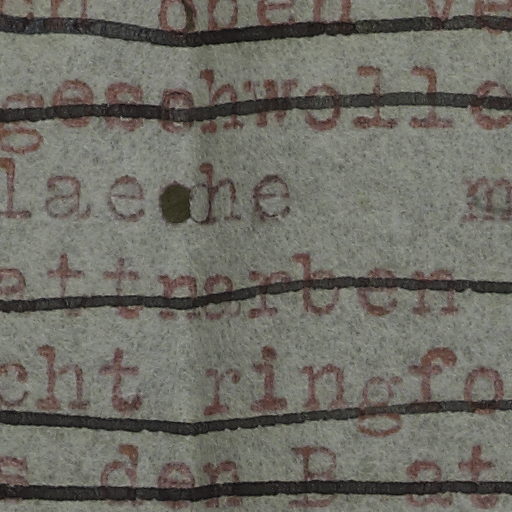 on oben ve
geschwolle
lae he m
attnarben
cht ringfo
s den B at